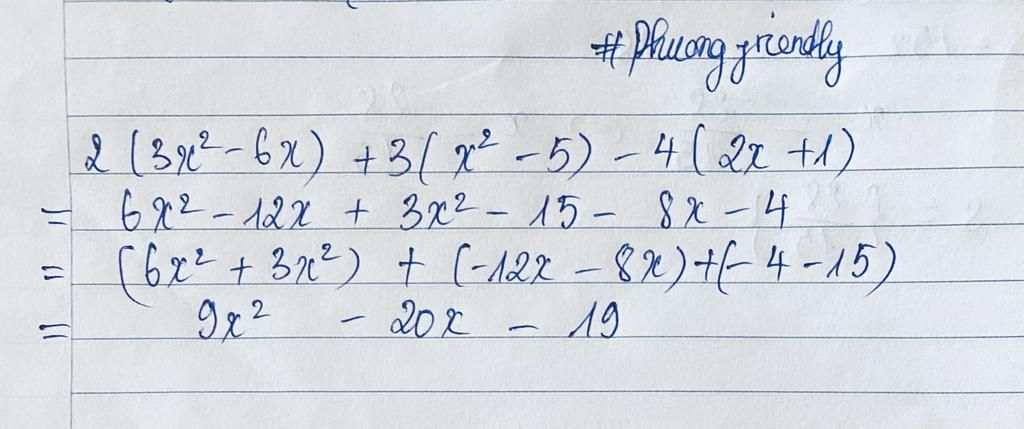 # Phuong friendly
2 (3x² - 6x) + 3(x² - 5) - 4(2x + 1)
= 6x² - 12x + 3x² - 15 - 8x - 4
= (6x² + 3x²) + (-12x - 8x) + (-4 - 15)
= 9x² - 20x - 19